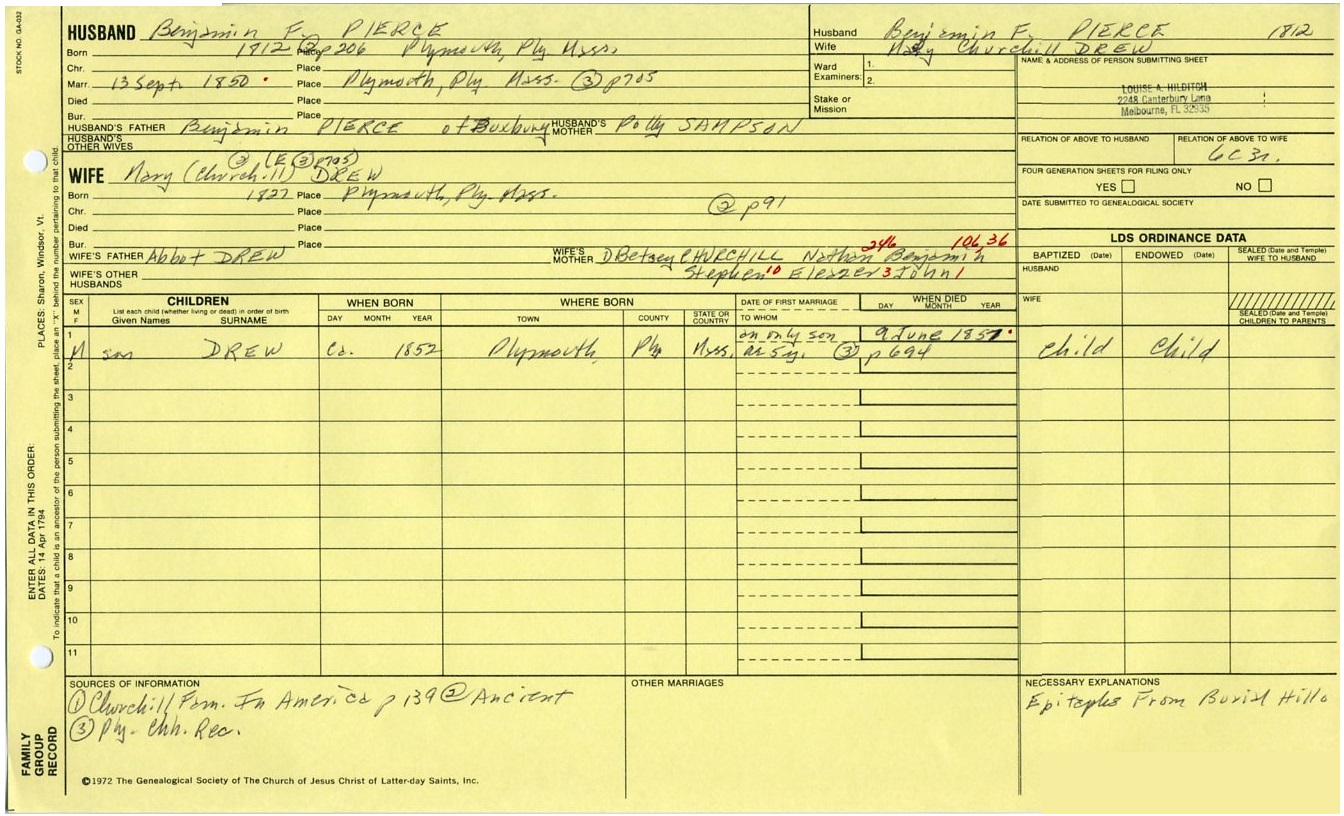 STOCK NO. GA-032
HUSBAND Benjamin F. PIERCE
Born 1812 ② p206 Place Plymouth, Ply. Mass.
Chr. Place
Marr. 13 Sept. 1850 Place Plymouth, Ply. Mass. ③ p705
Died Place
Bur. Place
HUSBAND'S FATHER Benjamin PIERCE of Duxbury HUSBAND'S MOTHER Polly SAMPSON
HUSBAND'S OTHER WIVES
② (E ③ p705)
WIFE Mary (Churchill) DREW
Born 1827 Place Plymouth, Ply. Mass.
Chr. Place ② p91
Died Place
Bur. Place
246 106,36
WIFE'S FATHER Abbot DREW WIFE'S MOTHER D Betsey CHURCHILL Nathan Benjamin
WIFE'S OTHER HUSBANDS Stephen 10 Eleazer 3 John 1
Husband Benjamin F. PIERCE 1812
Wife Mary Churchill DREW
Ward Examiners: 1.
2.
Stake or Mission
NAME & ADDRESS OF PERSON SUBMITTING SHEET
LOUISE A. HILDITCH
2248 Canterbury Lane
Melbourne, FL 32935
RELATION OF ABOVE TO HUSBAND RELATION OF ABOVE TO WIFE
6C3r.
FOUR GENERATION SHEETS FOR FILING ONLY
YES NO
DATE SUBMITTED TO GENEALOGICAL SOCIETY
LDS ORDINANCE DATA
BAPTIZED (Date) ENDOWED (Date) SEALED (Date and Temple) WIFE TO HUSBAND
HUSBAND
WIFE
SEALED (Date and Temple) CHILDREN TO PARENTS
SEX M F CHILDREN WHEN BORN WHERE BORN DATE OF FIRST MARRIAGE WHEN DIED
List each child (whether living or dead) in order of birth
Given Names SURNAME DAY MONTH YEAR TOWN COUNTY STATE OR COUNTRY TO WHOM DAY MONTH YEAR
1 an only son 9 June 1857
M son DREW Ca. 1852 Plymouth, Ply. Mass. ae 5y. ③ p694 Child Child
2
3
4
5
6
7
8
9
10
11
SOURCES OF INFORMATION
① Churchill Fam. In America p 139 ② Ancient
③ Ply. Chh. Rec.
OTHER MARRIAGES
NECESSARY EXPLANATIONS
Epitaphs From Burial Hill
©1972 The Genealogical Society of The Church of Jesus Christ of Latter-day Saints, Inc.
FAMILY GROUP RECORD
ENTER ALL DATA IN THIS ORDER:
DATES: 14 Apr 1794
PLACES: Sharon, Windsor, Vt.
To indicate that a child is an ancestor of the person submitting the sheet, place an "X" behind the number pertaining to that child.